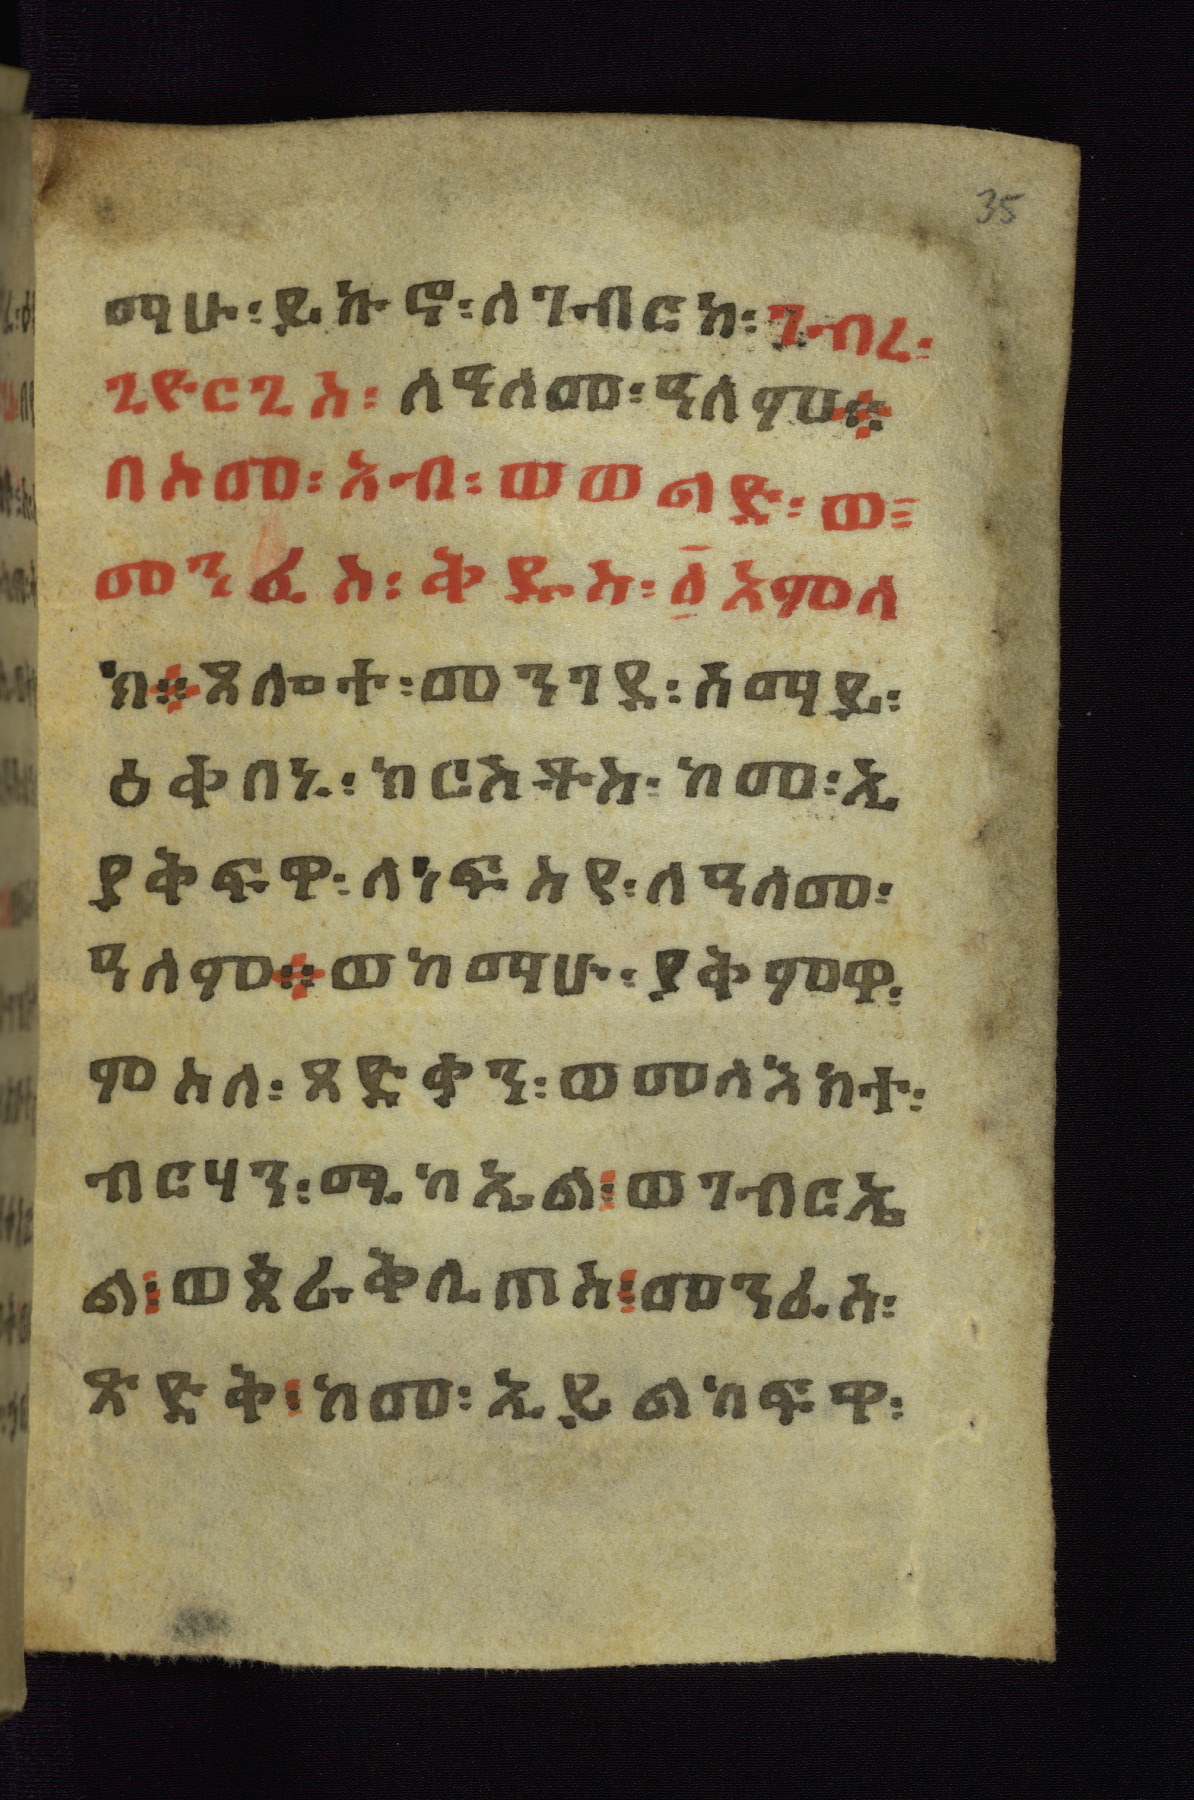 35
ማሁ፡ይኩኖ፡ለገብርከ፡ገብረ፡
ጊዮርጊስ፡ለዓለመ፡ዓለም።
በስመ፡አብ፡ወወልድ፡ወ፡
መንፈስ፡ቅዱስ፡፩አምላ
ክ።ጸሎተ፡መንገደ፡ሰማይ፡
ዕቀበኒ፡ክርስቶስ፡ከመ፡ኢ
ያቅፍዋ፡ለነፍስየ፡ለዓለመ፡
ዓለም።ወከማሁ፡ያቅምዋ፡
ምስለ፡ጻድቃን፡ወመላእክተ፡
ብርሃን፡ሚካኤል፡ወገብርኤ
ል፡ወጰራቅሊጦስ፡መንፈሰ፡
ጽድቅ፡ከመ፡ኢይልክፍዋ፡